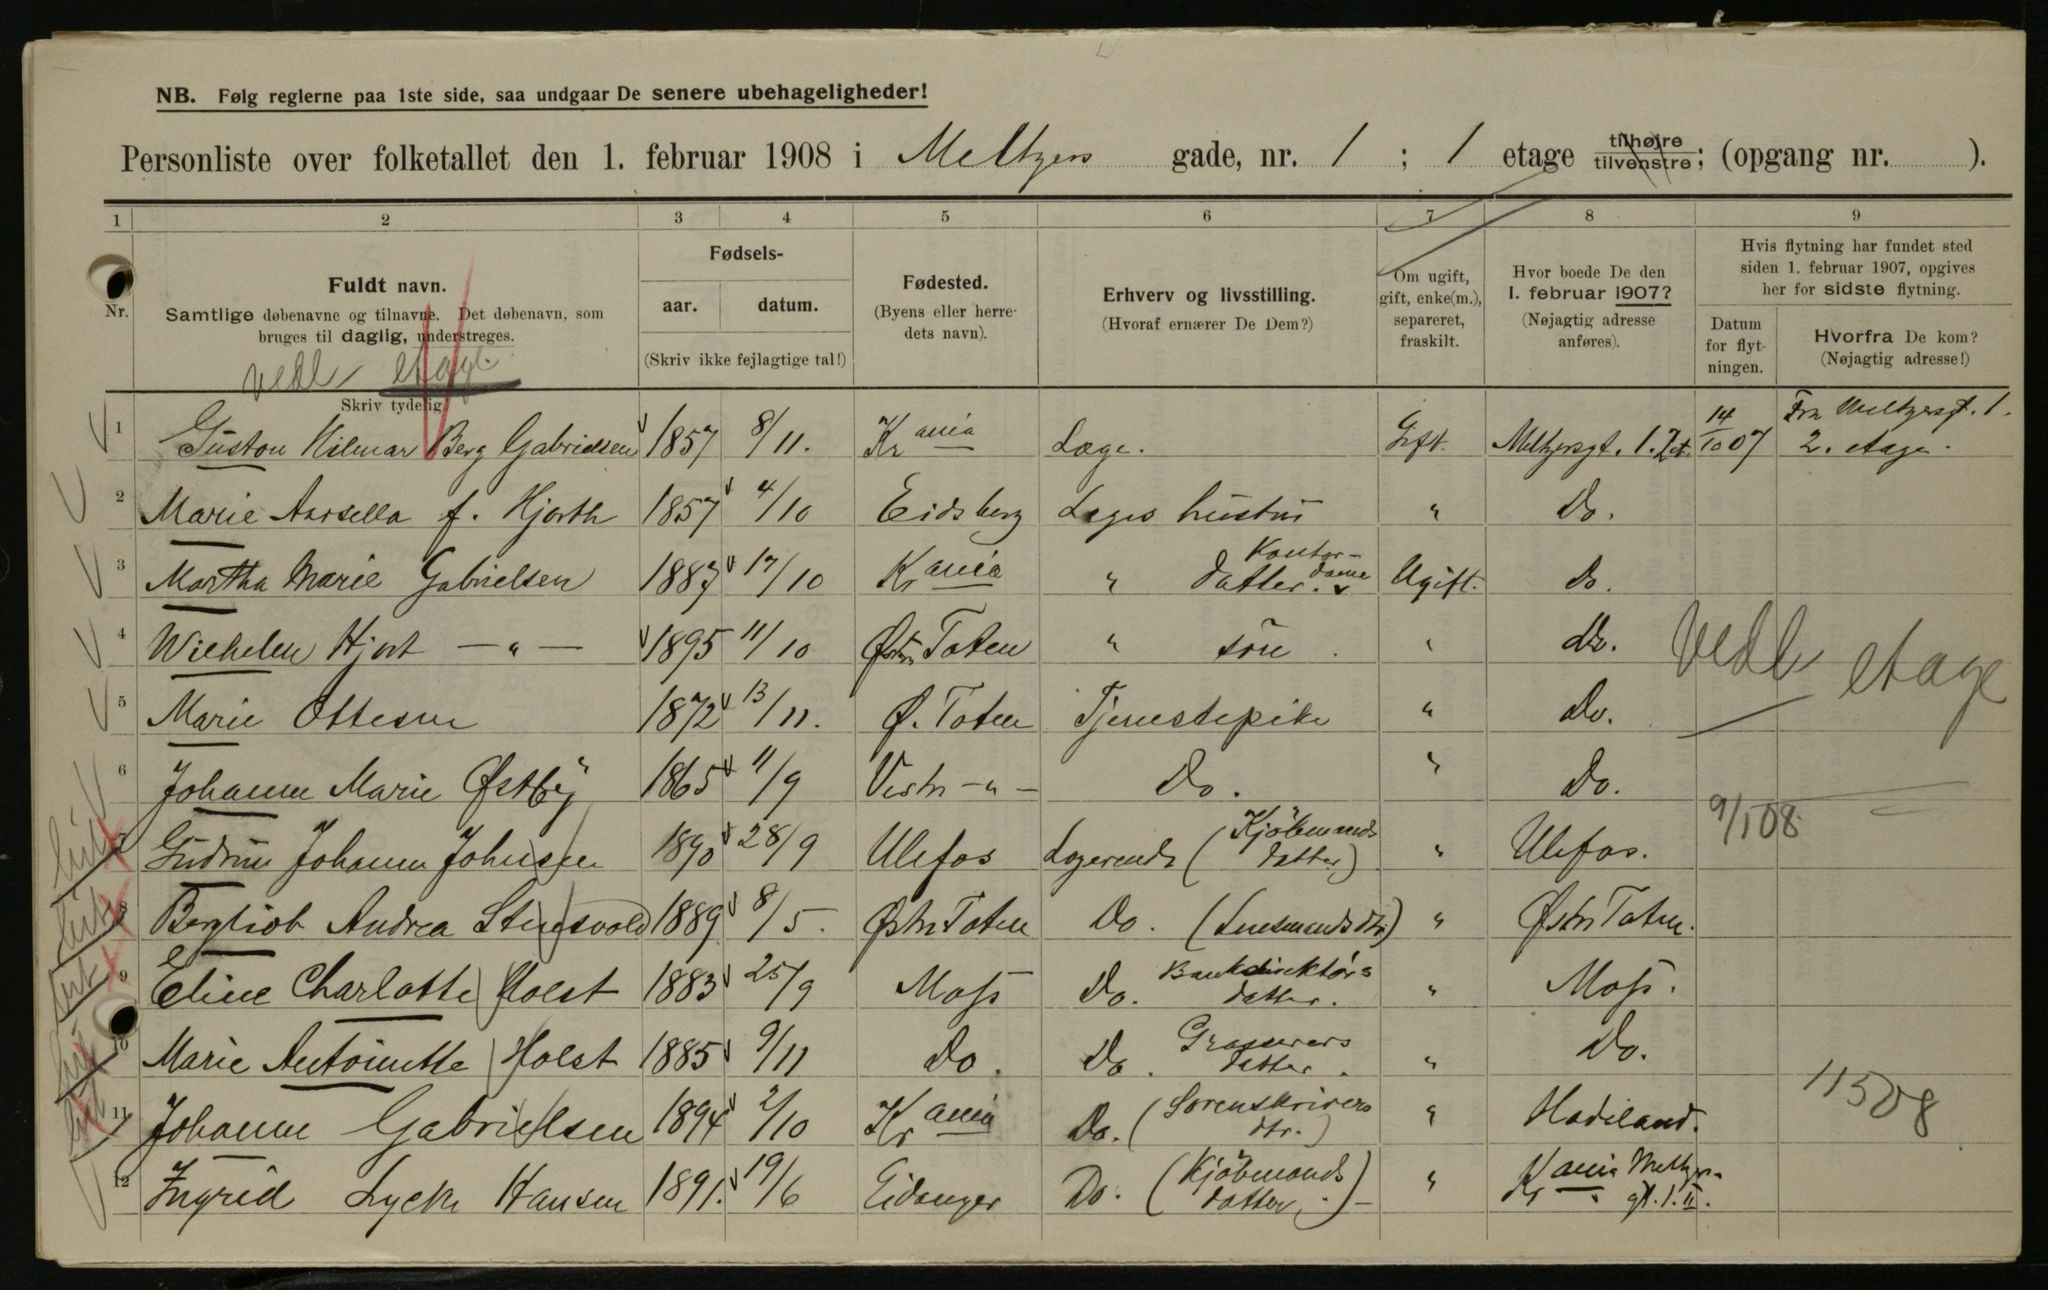 NB. Følg reglerne paa 1ste side, saa undgaar De senere ubehageligheder!
Personliste over folketallet den 1. februar 1908 i Meltzers gade, nr. 1 ; 1 etage tilhøjre tilvenstre; (opgang nr. ).
1 2 3 4 5 6 7 8 9
Nr.
Fuldt navn.
Samtlige døbenavne og tilnavne. Det døbenavn, som
bruges til daglig, understreges.
vedl etage
Skriv tydelig
Fødsels-
aar. datum.
(Skriv ikke fejlagtige tal!)
Fødested.
(Byens eller herre-
dets navn).
Erhverv og livsstilling.
(Hvoraf ernærer De Dem?)
Om ugift,
gift, enke(m.),
separeret,
fraskilt.
Hvor boede De den
1. februar 1907?
(Nøjagtig adresse
anføres).
Hvis flytning har fundet sted
siden 1. februar 1907, opgives
her for sidste flytning.
Datum
for flyt-
ningen.
Hvorfra De kom?
(Nøjagtig adresse!)
1 Gustav Hilmar Berg Gabrielsen 1857 8/11. Kr ania Læge. Gift. Meltzersgt. 1. 2 et. 14/10 07 Fra Meltzersgt. 1.
2. etage.
2 Marie f. Hjorth 1857 4/10 Eidsberg Læges hustru " Do.
3 Martha Marie Gabrielsen 1883 17/10 Kr ania " datter. Kontor-
dame Ugift. Do.
4 Wilhelm Hjort — " — 1895 11/10 Østre Toten " søn . " Do.
vedl etage
5 Marie Ottesen 1872 13/11. Ø. Toten Tjenestepike " Do.
6 Johanne Marie Østby 1865 11/9 Vestre - " - Do. " Do.
9/1 08
7 Gudrun Johanne Johnsen 1890 28/9 Ulefos Logerende (Kjöbmands
datter) " Ulefos.
8 Bergliot Andrea Stensvold 1889 8/5. Østre Toten Do. (Lensmandsdtr.) " Østre Toten.
9 Eline Charlotte Holst 1883 25/9 Moss Do. Bankdirektörs
datter. " Moss.
10 Marie Antoinette Holst 1885 9/11 Do. Do. Grosserers
datter. " Do.
11508
11 Johanne Gabrielsen 1894 2/10 Kr ania Do. (Sorenskrivers
dtr.) " Hadeland.
12 Ingrid Lycke Hansen 1891. 19/6 Eidanger Do. (Kjöbmands
datter.) — " Kr ania Meltzers-
gt. 1. II.